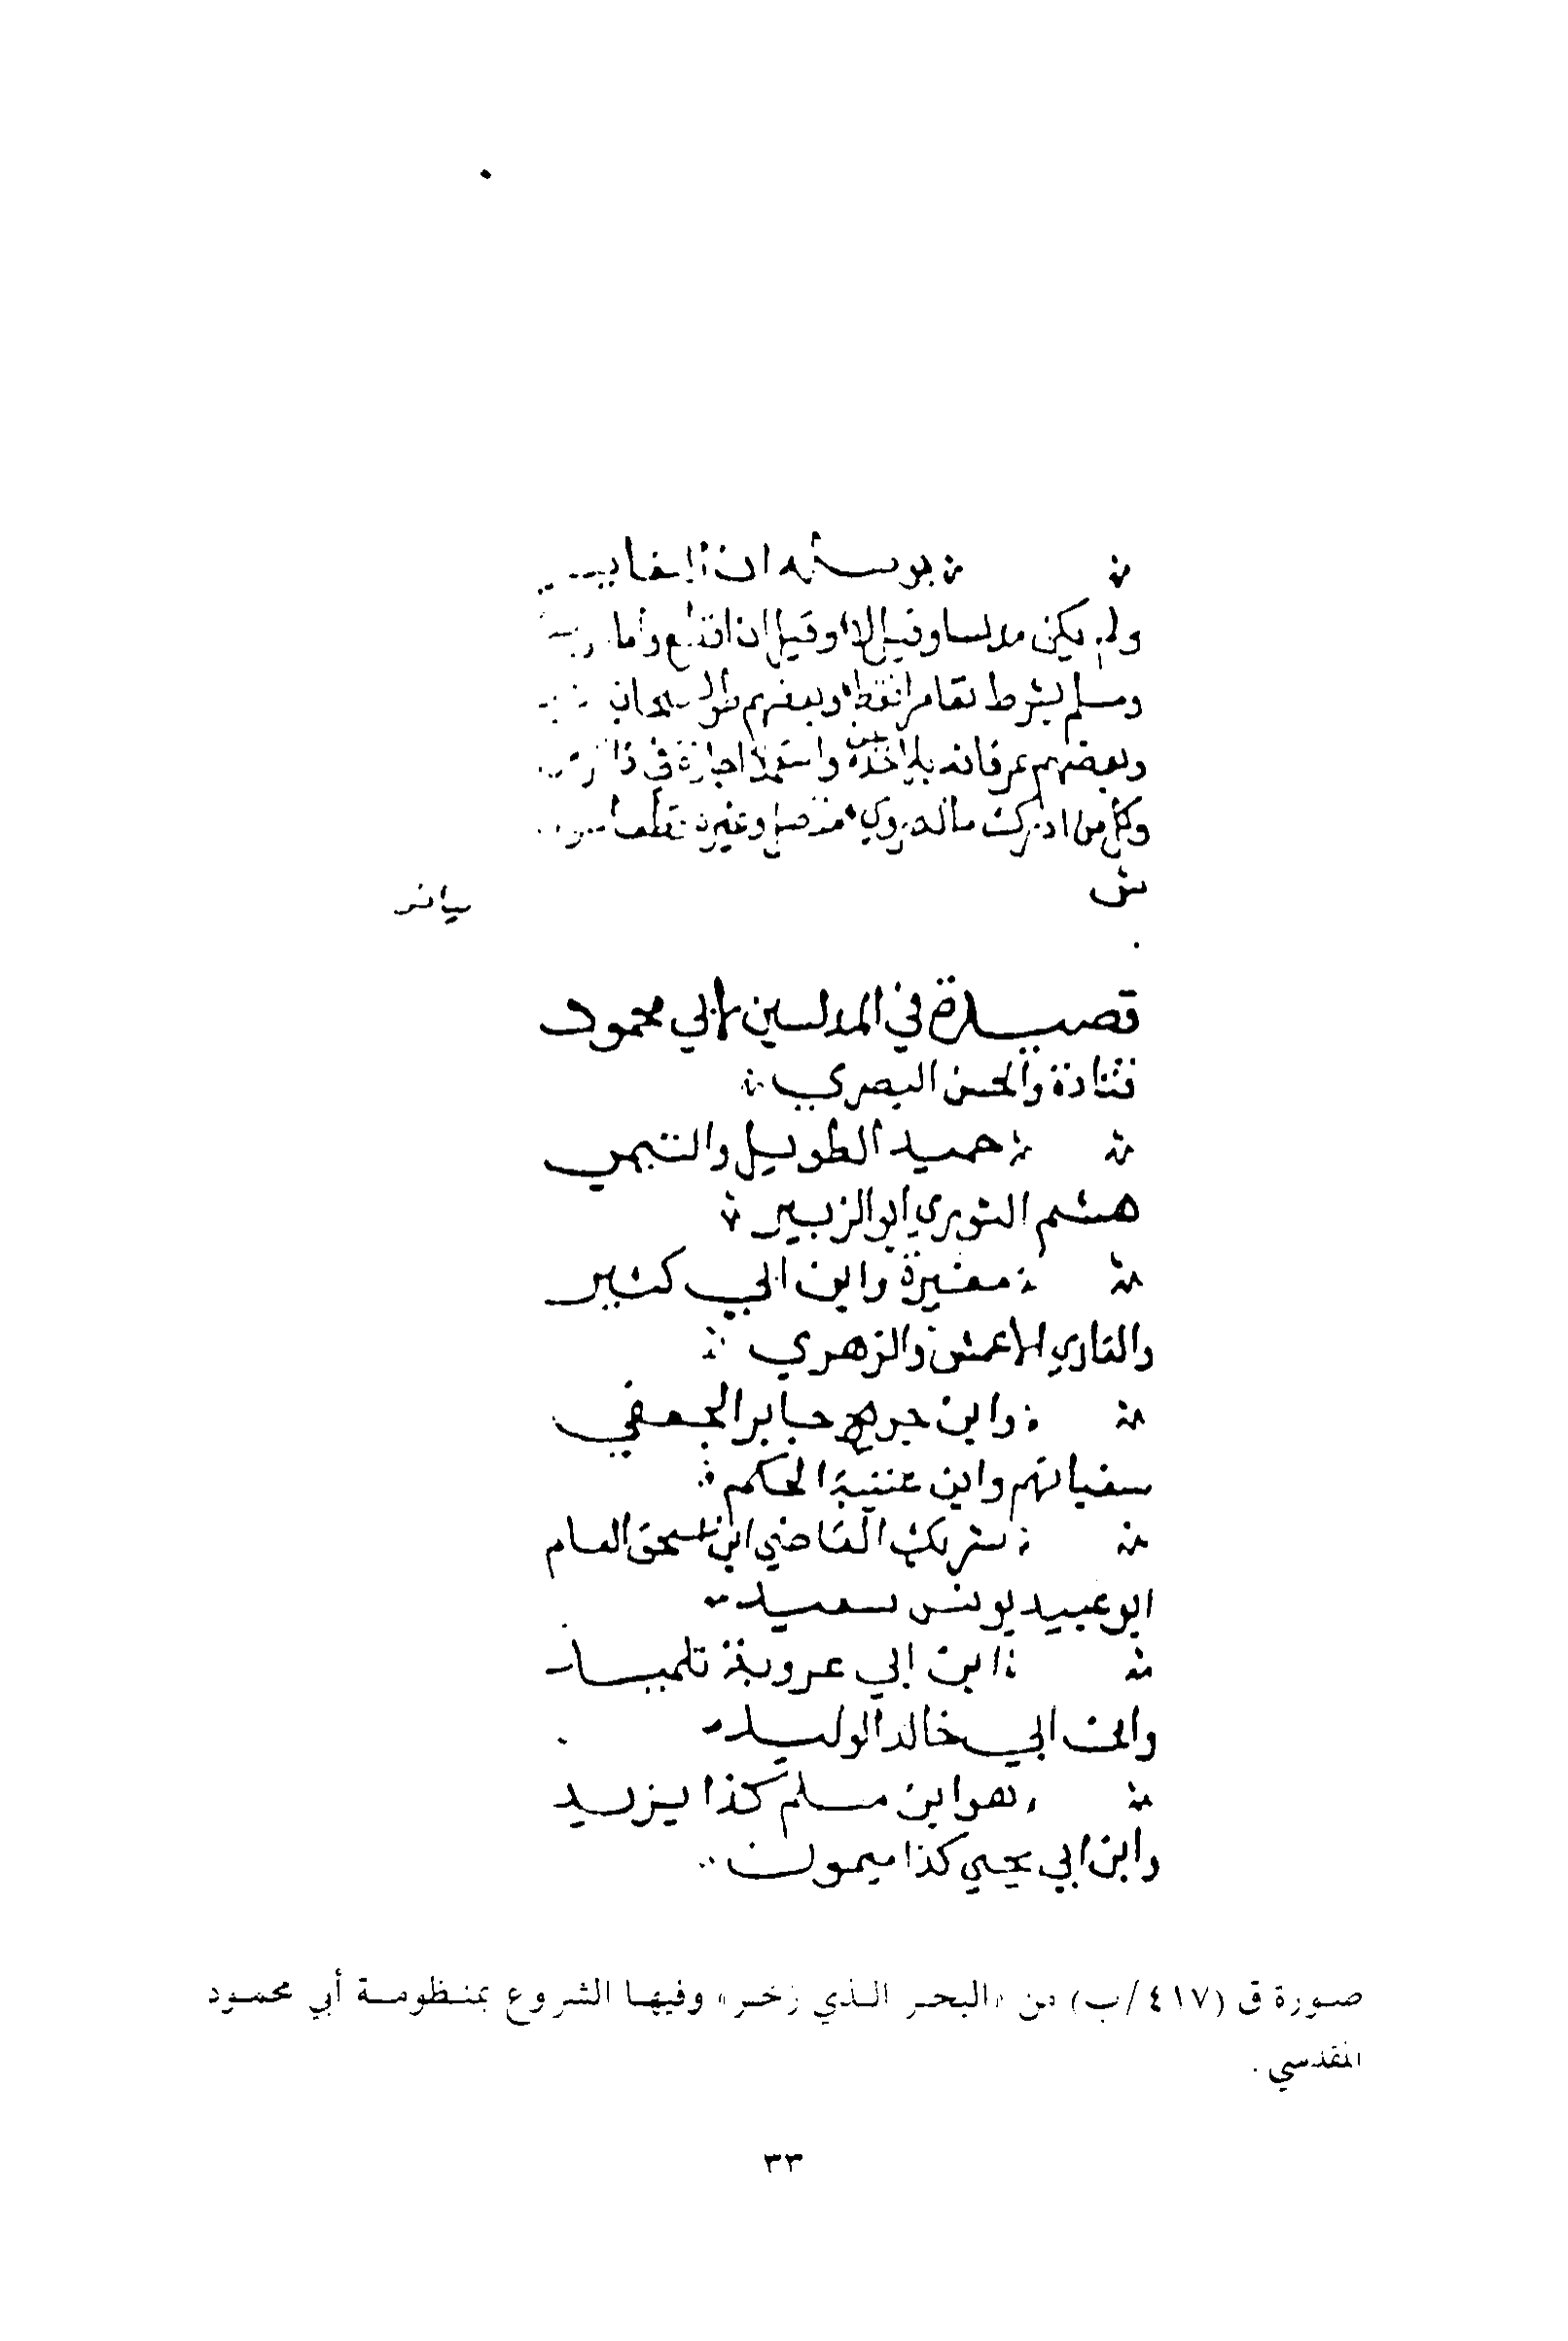 ولم يكن مدلسا وقيل لا وقيل ان
ومسلم يشرط تعاصرا فقط وبعضهم طول
وبعضهم عرفانه باخذه عن واستعملا اجازة في ذا
وكل من ادرك ما له روي متصل وغيره
ش
قصيدة في المدلسين لابي محمود
قتادة والحسن البصري
حميد الطويل والتيمي
هشيم الثوري ابو الزبير
مغيرة وابن ابي كثير
والقاري الاعمش والزهري
وابن جريج جابر الجعفي
سفيانهم وابن عتيبة الحكم
شريك القاضي ابن اسحق العلم
ابو عبيد يونس سعيد
ابن ابي عروبة
وابن ابي خالد الوليد
هو ابن مسلم كذا يزيد
وابن ابي يحيي كذا ميمون
صورة ق (٤١٧/ب) من «البحر الذي زخر» وفيها الشروع بمنظومة أبي محمود
المقدسي .
٣٣